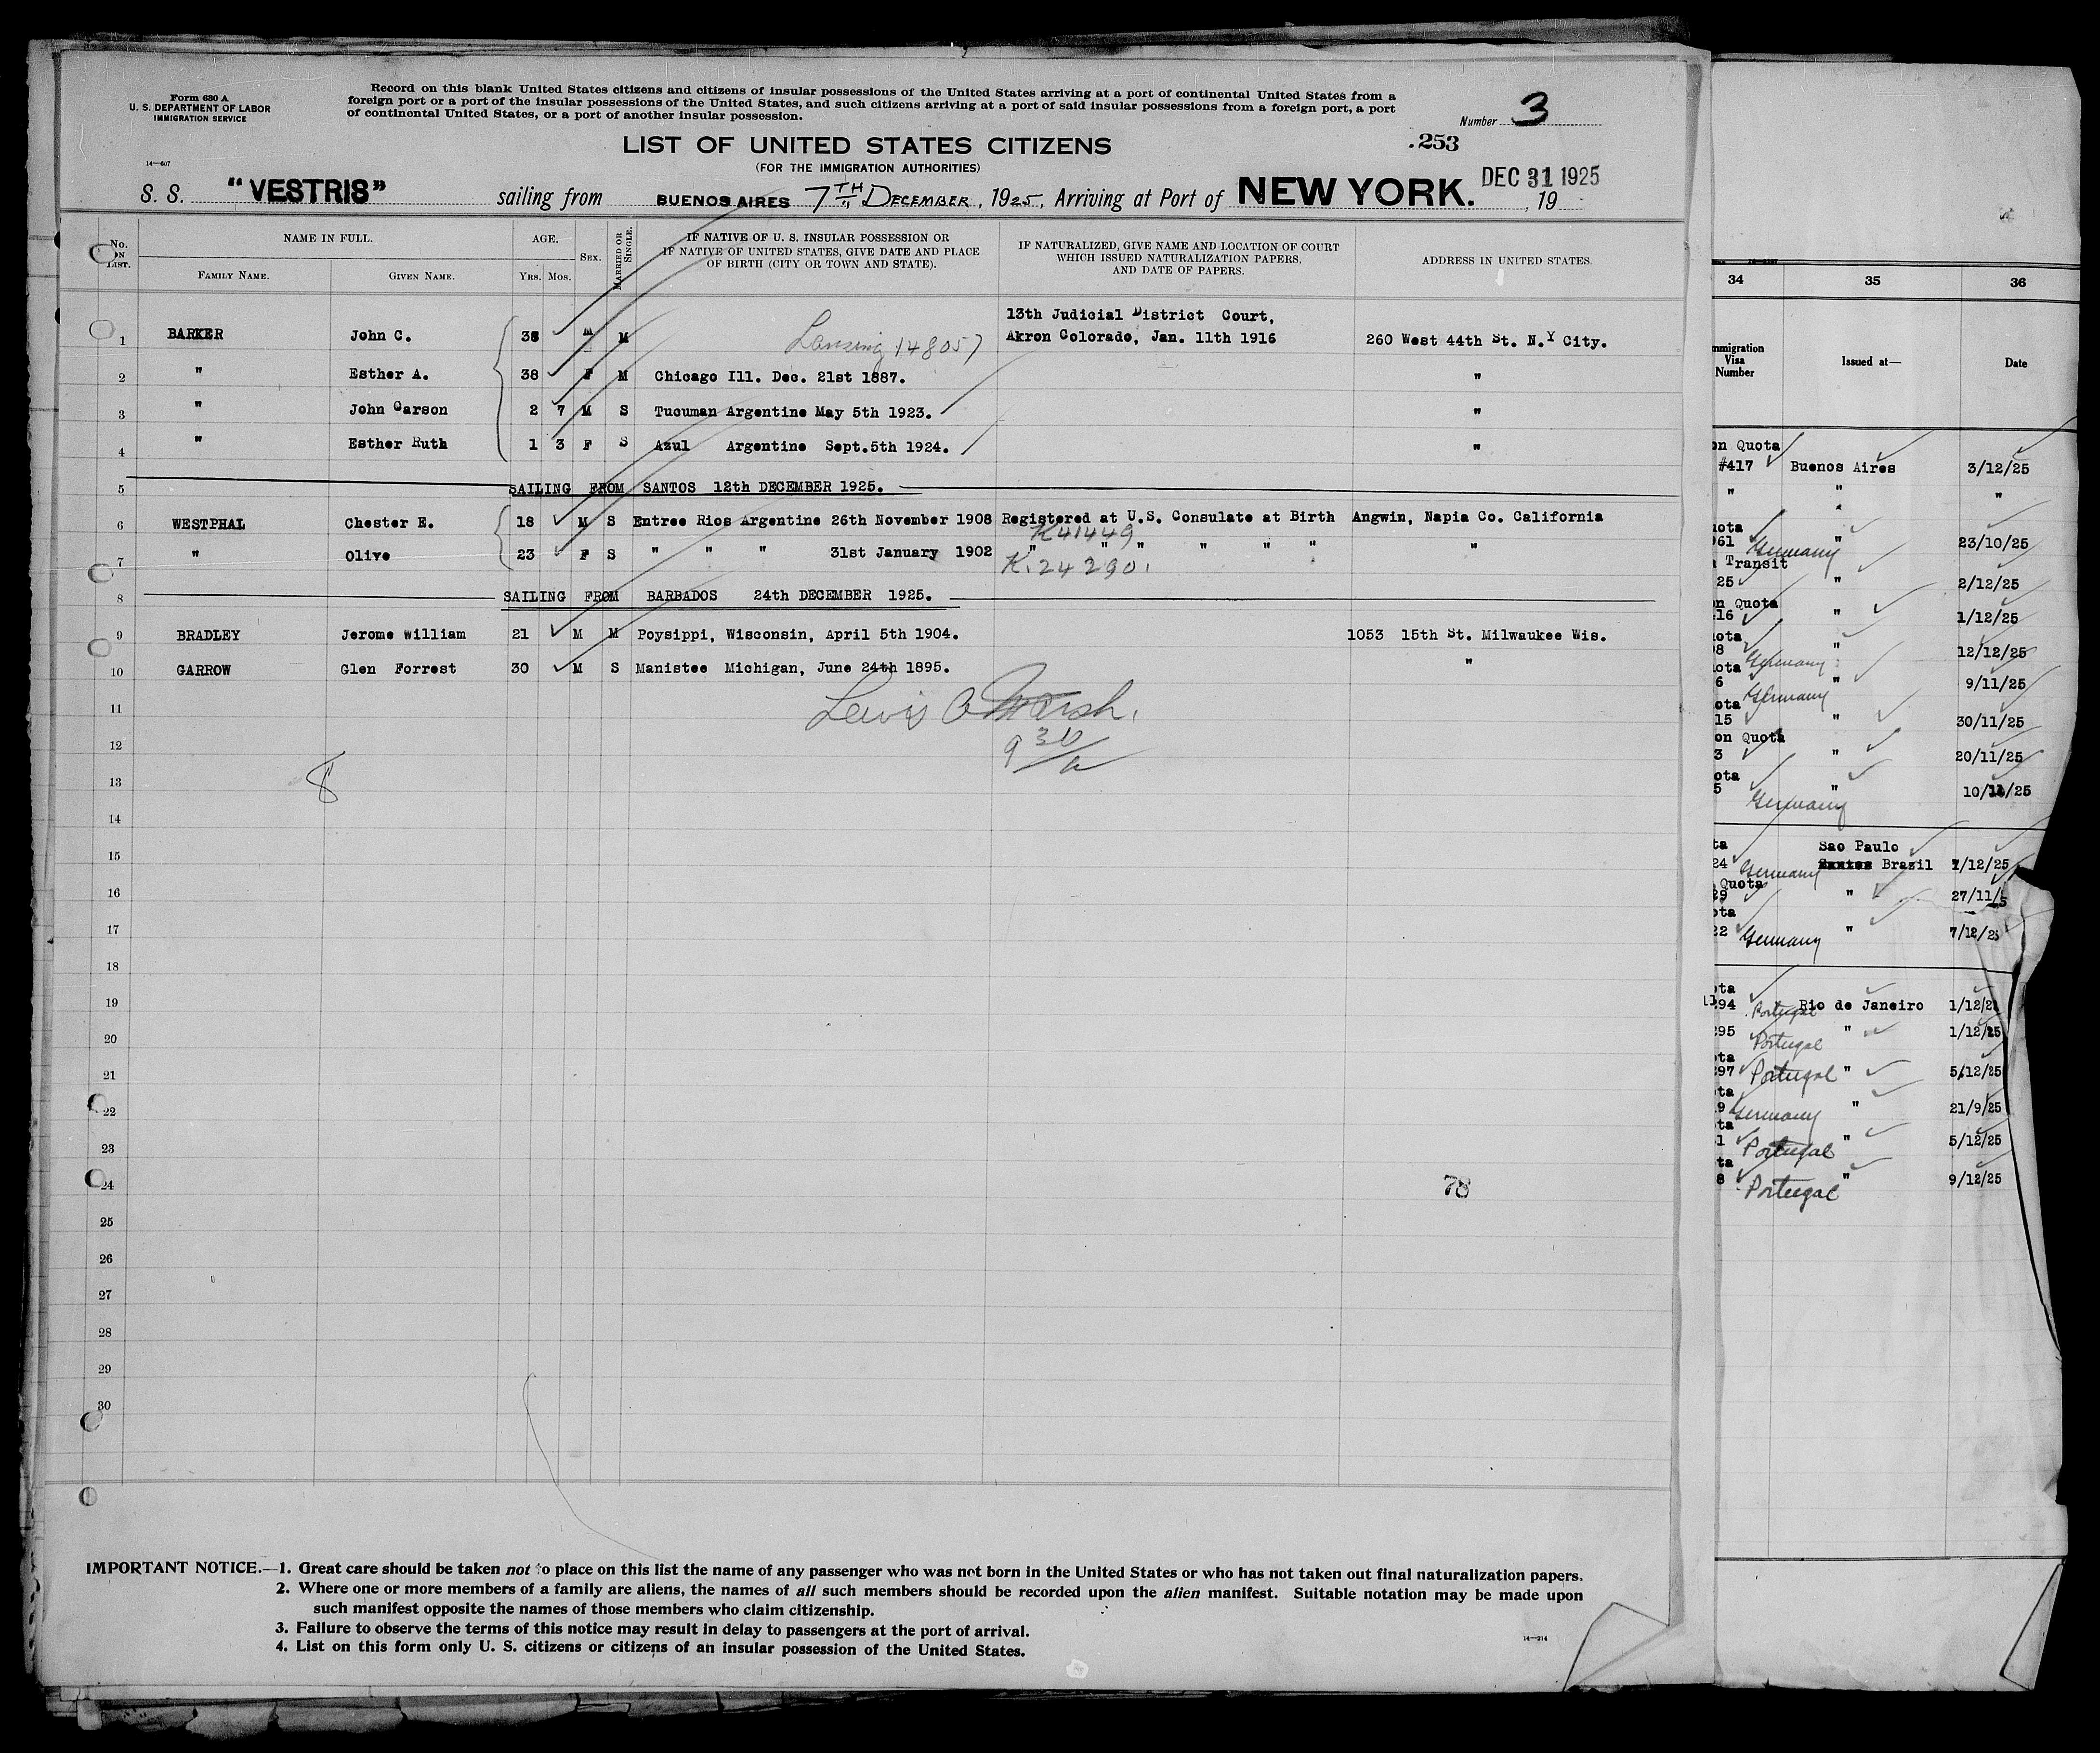 Form 630 A
U. S. DEPARTMENT OF LABOR
IMMIGRATION SERVICE
14—607
Record on this blank United States citizens and citizens of insular possessions of the United States arriving at a port of continental United States from a
foreign port or a port of the insular possessions of the United States, and such citizens arriving at a port of said insular possessions from a foreign port, a port
of continental United States, or a port of another insular possession.
Number 3
LIST OF UNITED STATES CITIZENS
.253
(FOR THE IMMIGRATION AUTHORITIES)
S. S. "VESTRIS" sailing from BUENOS AIRES 7TH DECEMBER, 1925, Arriving at Port of NEW YORK. DEC 31 1925, 19
No. ON LIST.
NAME IN FULL.
FAMILY NAME.
GIVEN NAME.
AGE.
YRS. MOS.
SEX.
MARRIED OR SINGLE.
IF NATIVE OF U. S. INSULAR POSSESSION OR
IF NATIVE OF UNITED STATES, GIVE DATE AND PLACE
OF BIRTH (CITY OR TOWN AND STATE).
IF NATURALIZED, GIVE NAME AND LOCATION OF COURT
WHICH ISSUED NATURALIZATION PAPERS,
AND DATE OF PAPERS.
ADDRESS IN UNITED STATES.
13th Judicial District Court,
1 BARKER John C. 38 M M Lansing 148057 Akron Colorado, Jan. 11th 1916 260 West 44th St. N.Y City.
2 " Esther A. 38 F M Chicago Ill. Dec. 21st 1887. "
3 " John Carson 2 7 M S Tucuman Argentine May 5th 1923. "
4 " Esther Ruth 1 3 F S Azul Argentine Sept.5th 1924. "
5 SAILING FROM SANTOS 12th DECEMBER 1925.
6 WESTPHAL Chester E. 18 M S Entree Rios Argentine 26th November 1908 Registered at U.S. Consulate at Birth Angwin, Napia Co. California
K41449
7 " Olive 23 F S " " " 31st January 1902 " " " " " " "
K.24290.
8 SAILING FROM BARBADOS 24th DECEMBER 1925.
9 BRADLEY Jerome William 21 M M Poysippi, Wisconsin, April 5th 1904. 1053 15th St. Milwaukee Wis.
10 GARROW Glen Forrest 30 M S Manistee Michigan, June 24th 1895. "
11 Lewis
12 9 30/a
13 8
14
15
16
17
18
19
20
21
22
23
24 78
25
26
27
28
29
30
IMPORTANT NOTICE.—1. Great care should be taken not to place on this list the name of any passenger who was not born in the United States or who has not taken out final naturalization papers.
2. Where one or more members of a family are aliens, the names of all such members should be recorded upon the alien manifest. Suitable notation may be made upon
such manifest opposite the names of those members who claim citizenship.
3. Failure to observe the terms of this notice may result in delay to passengers at the port of arrival.
4. List on this form only U. S. citizens or citizens of an insular possession of the United States.
14—214
34 35 36
Visa
Number
Issued at—
Date
on Quota
#417 Buenos Aires 3/12/25
" " "
61 Germany " 23/10/25
Transit
25 " 2/12/25
on Quota
16 " 1/12/25
08 Germany " 12/12/25
6 Germany " 9/11/25
15 " 30/11/25
on Quota
3 " 20/11/25
5 Germany " 10/11/25
Sao Paulo
24 Germany Brazil 1/12/25
Quota
29 " 27/11/5
22 Germany " 7/12/25
294 Portugal Rio de Janeiro 1/12/2
295 Portugal " 1/12/25
297 Portugal " 5/12/25
9 Germany " 21/9/25
1 Portugal " 5/12/25
8 Portugal " 9/12/25